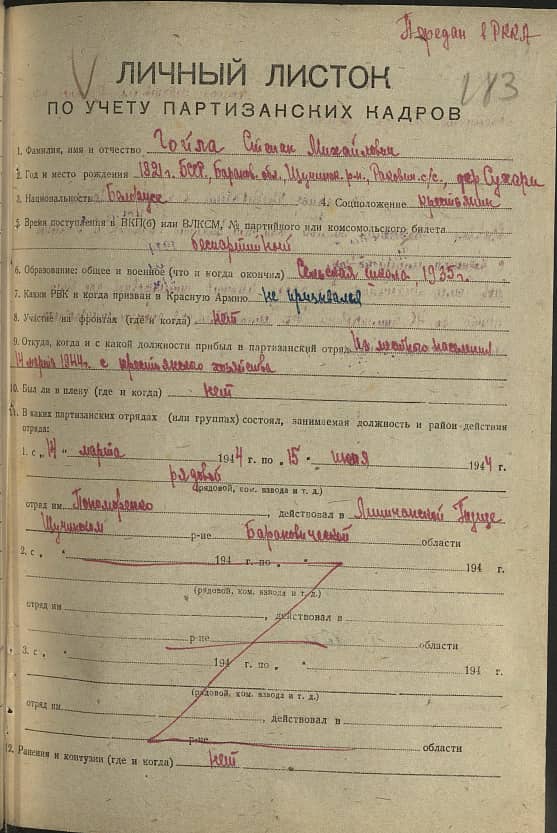 Передан в РККА
183
ЛИЧНЫЙ ЛИСТОК
ПО УЧЕТУ ПАРТИЗАНСКИХ КАДРОВ
1. Фамилия, имя и отчество Гойла Степан Михайлович
2. Год и место рождения 1921г. БССР, Баранов. обл., Щучинск. р-н, Ракович. с/с., дер. Сухари
3. Национальность Беларус 4. Соцположение крестьянин
5. Время поступления в ВКП(б) или ВЛКСМ, № партийного или комсомольского билета
беспартийный
6. Образование: общее и военное (что и когда окончил) Сельская школа, 1935г.
7. Каким РВК и когда призван в Красную Армию не призывался
8. Участие на фронтах (где и когда) нет
9. Откуда, когда и с какой должности прибыл в партизанский отряд Из местного населения
14 марта 1944г. с крестьянского хозяйства
10. Был ли в плену (где и когда) нет
11. В каких партизанских отрядах (или группах) состоял, занимаемая должность и район действия
отряда:
1. с „14" марта 1944 г. по „15" июля 1944 г.
рядовой
(рядовой, ком. взвода и т. д.)
отряд им. Пономаренко, действовал в Пуще
Щучинском р-не Барановической области
2. с „ " 194 г. по „ " 194 г.
(рядовой, ком. взвода и т. д.)
отряд им. , действовал в
р-не области
3. с „ " 194 г. по „ " 194 г.
(рядовой, ком. взвода и т. д.)
отряд им. , действовал в
р-не области
12. Ранения и контузии (где и когда) нет